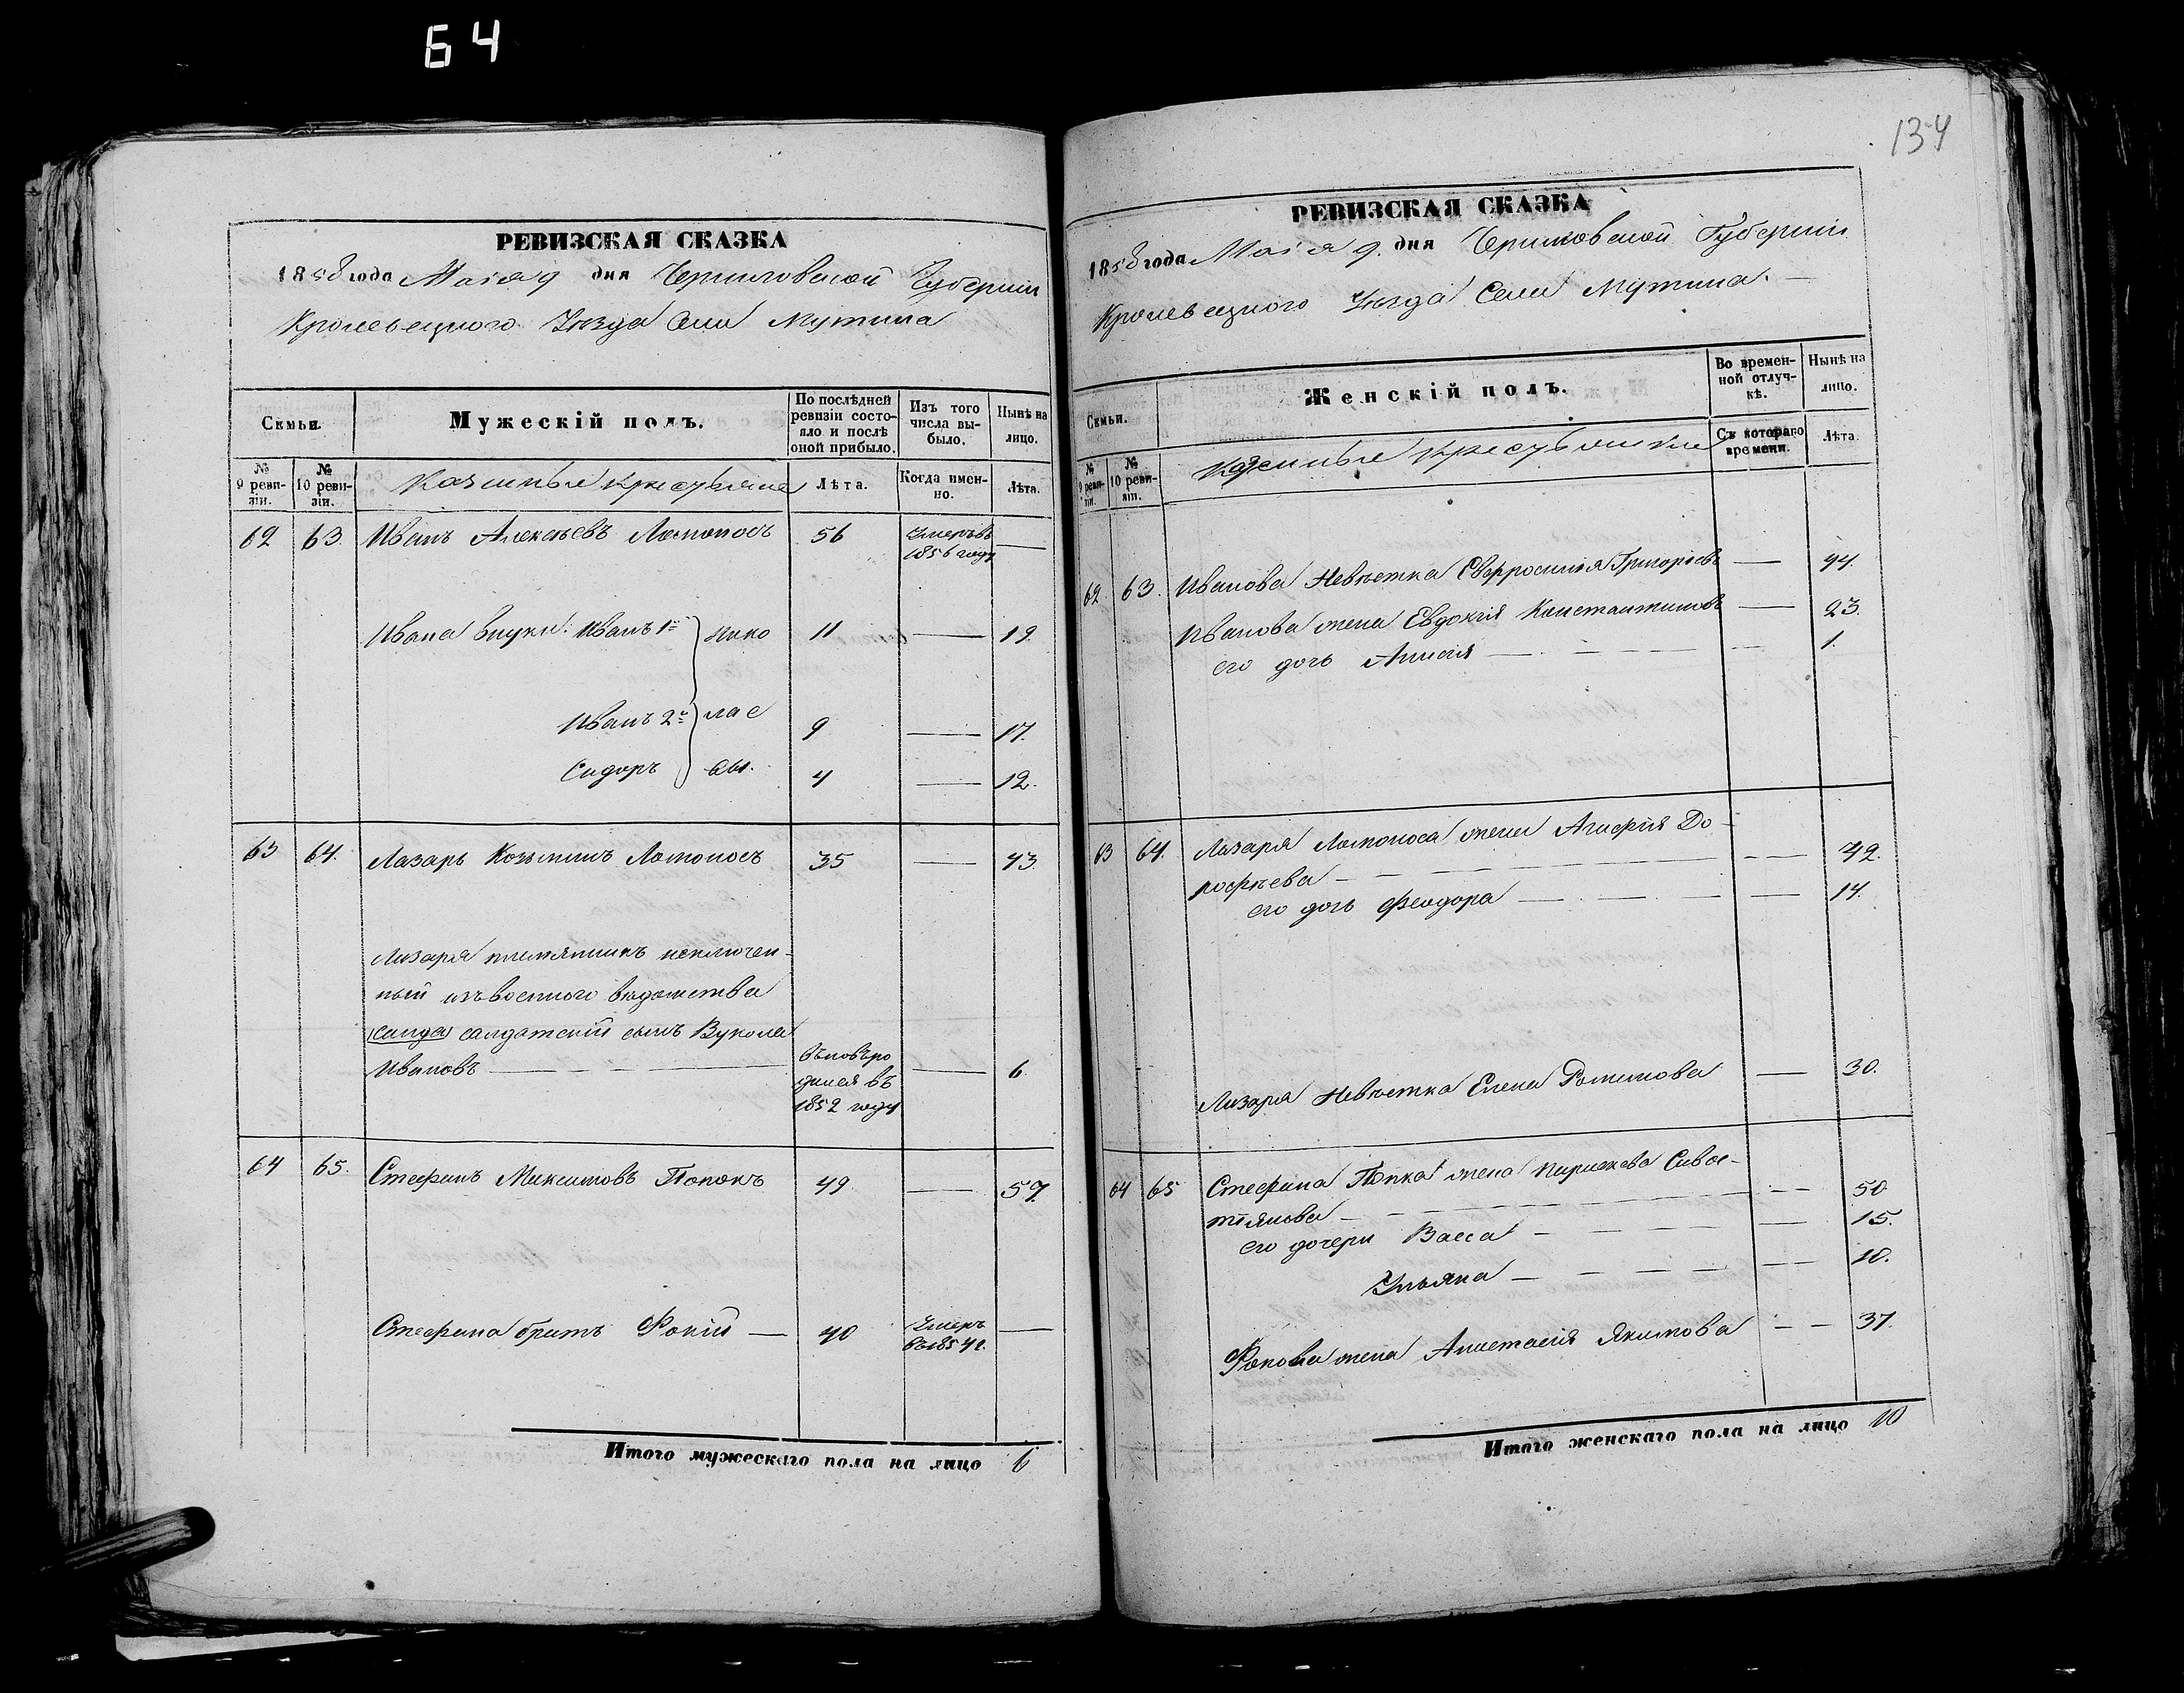 64
134
РЕВИЗСКАЯ СКАЗКА
1858 года Маія 9 дня Черниговской Губерніи
Кролевецкого Уѣзда Села Мутина
Семьи.
Мужескій полъ.
По послѣдней ревизіи состояло и послѣ оной прибыло.
Изъ того числа выбыло.
Нынѣ на лицо.
№ 9 ревизіи.
№ 10 ревизіи.
Казенные крестьяне
Лѣта.
Когда именно.
Лѣта.
62 63. Иванъ Алексѣевъ Ломоносъ 56 Умеръ въ 1856 году —
Ивана внуки: Иванъ 1й Нико 11 — 19.
Иванъ 2й лае 9 — 17.
Сидоръ вы. 4 — 12.
63 64. Лазарь Козьминъ Ломоносъ 35 — 43.
Лазаря племянникъ исключен-
ный изъ военного вѣдомства
(салда) салдатскій сынъ Вукола
Ивановъ — вновь родился въ 1852 году — 6
64 65. Стефанъ Максимовъ Попокъ 49 — 57.
Стефана братъ Фокій — 40 Умеръ въ 1854 г. —
Итого мужескаго пола на лицо 6
РЕВИЗСКАЯ СКАЗКА
1858 года Маія 9. дня Черниговской Губерніи
Кролевецкого Уѣзда Села Мутина. —
Семьи.
Женскій полъ.
Во временной отлучкѣ.
Нынѣ на лицо.
№ 9 ревизіи.
№ 10 ревизіи.
Казенные крестьянки
Съ котораго времени.
Лѣта.
62. 63. Иванова Невѣстка Евфросинія Григорьев — 44.
Иванова жена Евдокія Константинов — 23.
его дочь Анна — 1.
63 64. Лазаря Ломоноса жена Агафія До-
рофѣева — 42.
его дочь Феодора — 14.
Лазаря Невѣстка Елена Романова — 30.
64 65 Стефана Попка жена Параскева Савос-
тіянова — 50
его дочери Васса — 15.
Ульяна — 10.
Фокова жена Анастасія Якимова — 37.
Итого женскаго пола на лицо 10